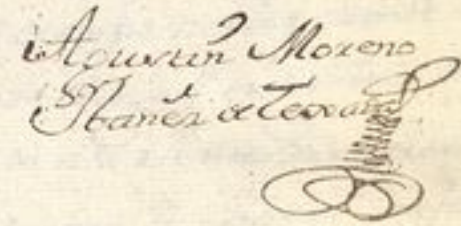 Agustin Moreno
Ybañez de Texada